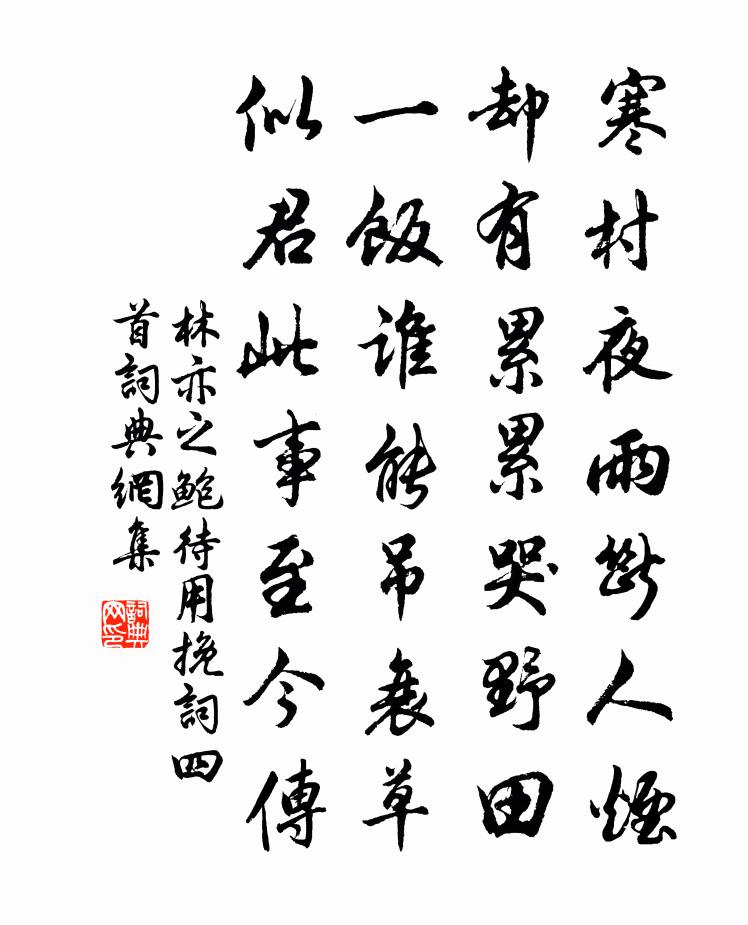 寒村夜雨斷人煙
却有累累哭野田
一飯誰能吊衰草
似君此事至今傳
林亦之鮑待用挽詞四
首詞典網集
詞典
网印